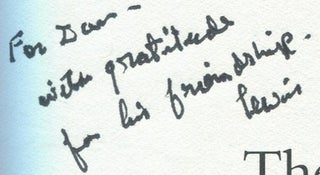 For Dan –
with gratitude
for his friendship.
Lewis
The